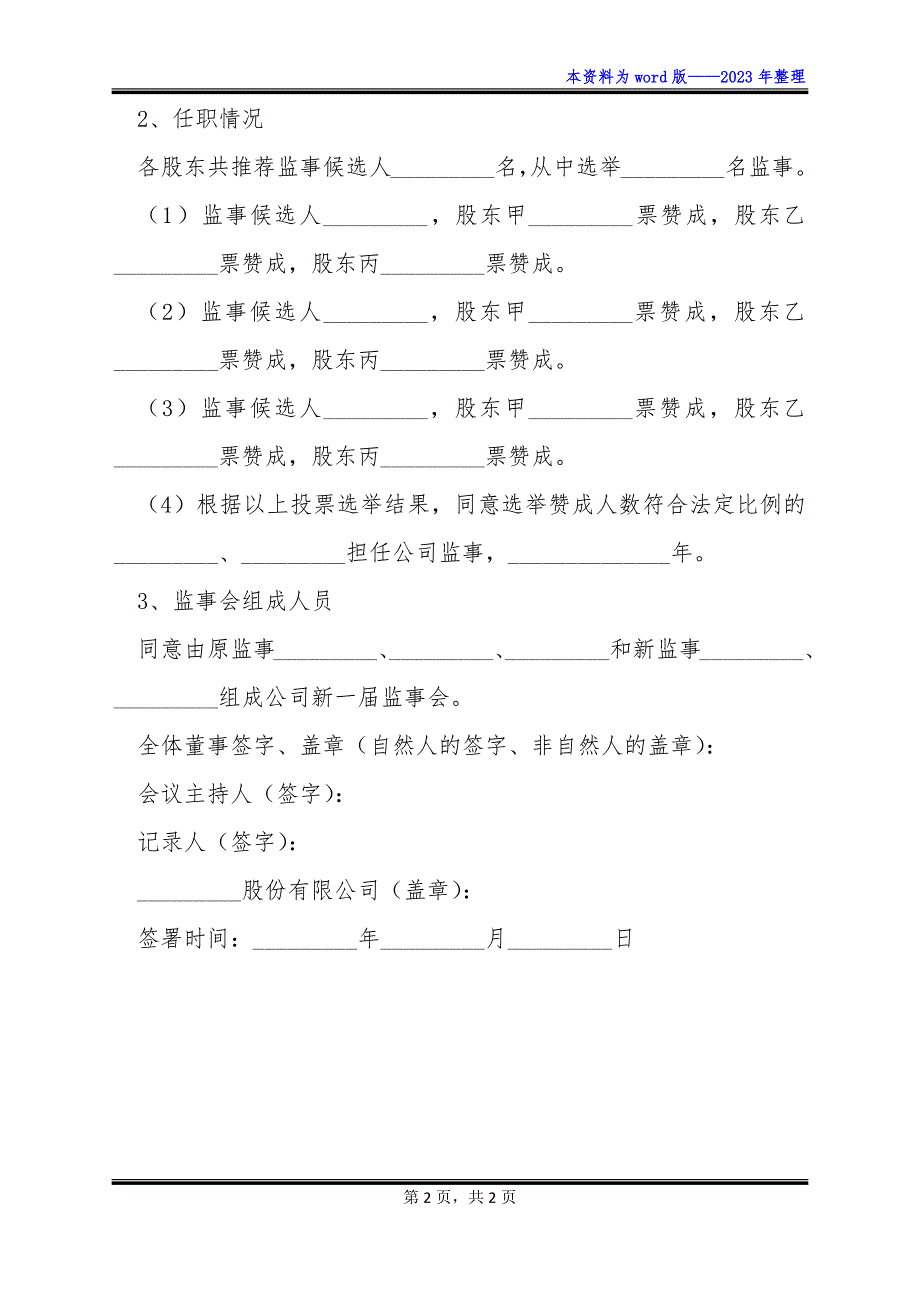 本资料为 word 版——2023 年整理
2、任职情况
各股东共推荐监事候选人_________名，从中选举_________名监事。
（1）监事候选人_________，股东甲_________票赞成，股东乙
_________票赞成，股东丙_________票赞成。
（2）监事候选人_________，股东甲_________票赞成，股东乙
_________票赞成，股东丙_________票赞成。
（3）监事候选人_________，股东甲_________票赞成，股东乙
_________票赞成，股东丙_________票赞成。
（4）根据以上投票选举结果，同意选举赞成人数符合法定比例的
_________、_________担任公司监事，______________年。
3、监事会组成人员
同意由原监事_________、_________、_________和新监事_________、
_________组成公司新一届监事会。
全体董事签字、盖章（自然人的签字、非自然人的盖章）：
会议主持人（签字）：
记录人（签字）：
_________股份有限公司（盖章）：
签署时间：_________年_________月_________日
第 2 页，共 2 页